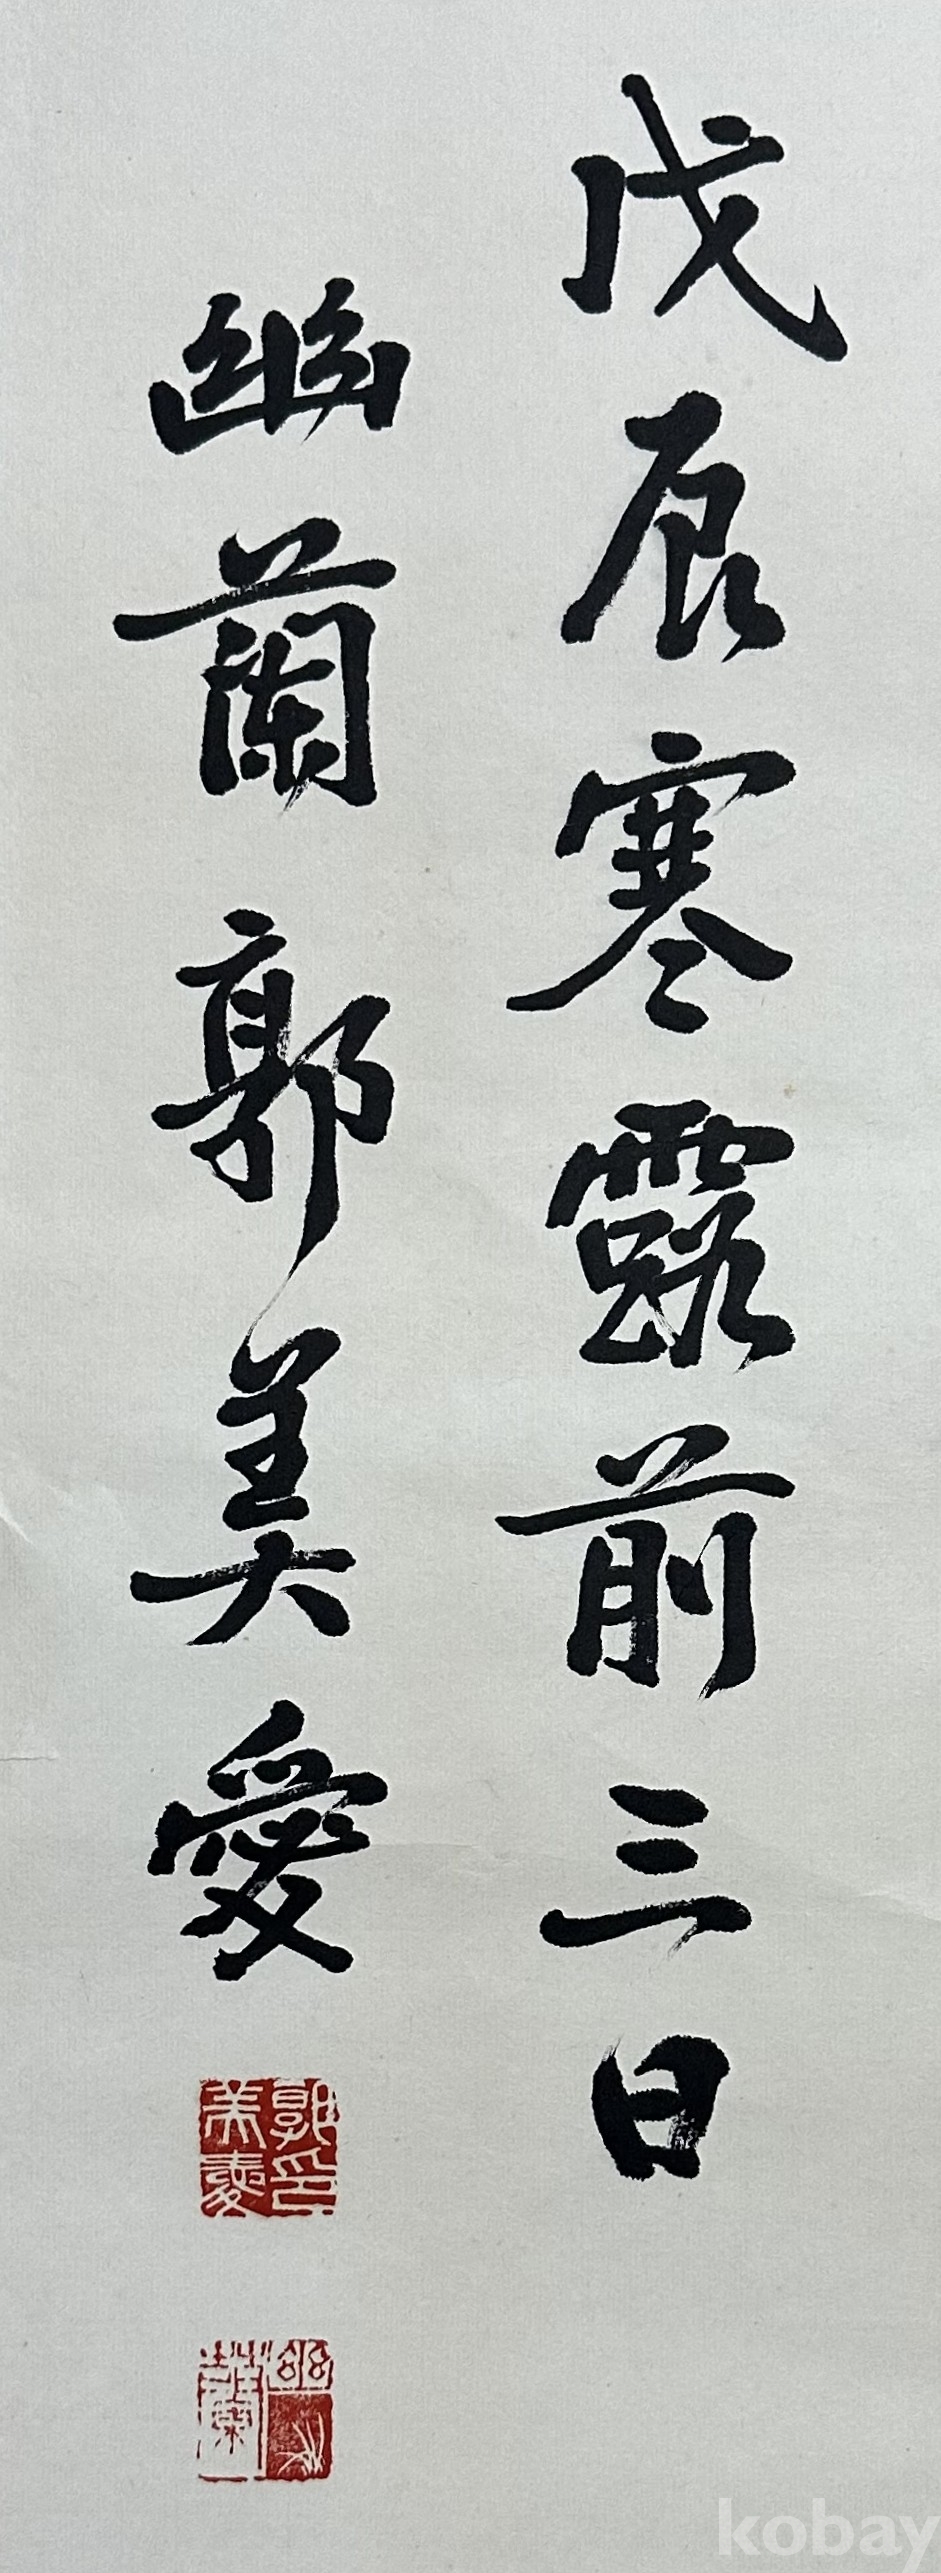 戊辰寒露前三日
幽蘭郭美愛
郭印美愛
幽蘭
kobay